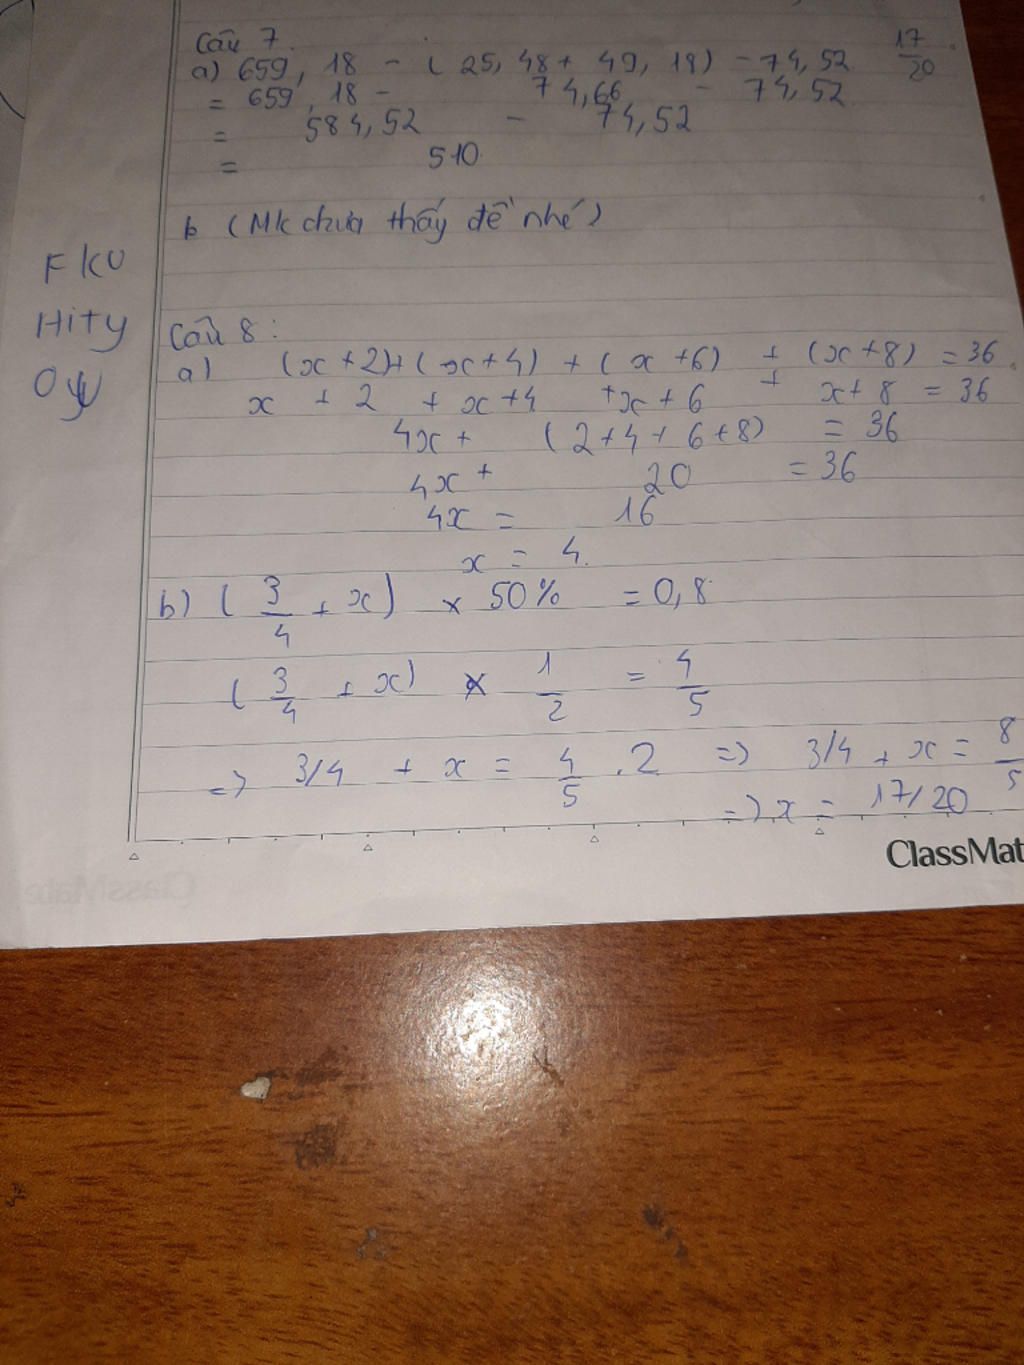 Câu 7.
17/20
a) 659,18 - (25,48 + 49,18) - 74,52
= 659,18 - 74,66 - 74,52
= 584,52 - 74,52
= 510
b (Mk chưa thấy đề nhé)
F KU
Hity
Câu 8:
a) (x+2)+(x+4) + (x+6) + (x+8) = 36
x + 2 + x+4 + x + 6 + x+ 8 = 36
4x + (2+4+6+8) = 36
4x + 20 = 36
4x = 16
x = 4.
b) (3/4 + x) × 50% = 0,8
(3/4 + x) × 1/2 = 4/5
=> 3/4 + x = 4/5 . 2 => 3/4 + x = 8/5
=> x = 17/20
ClassMat